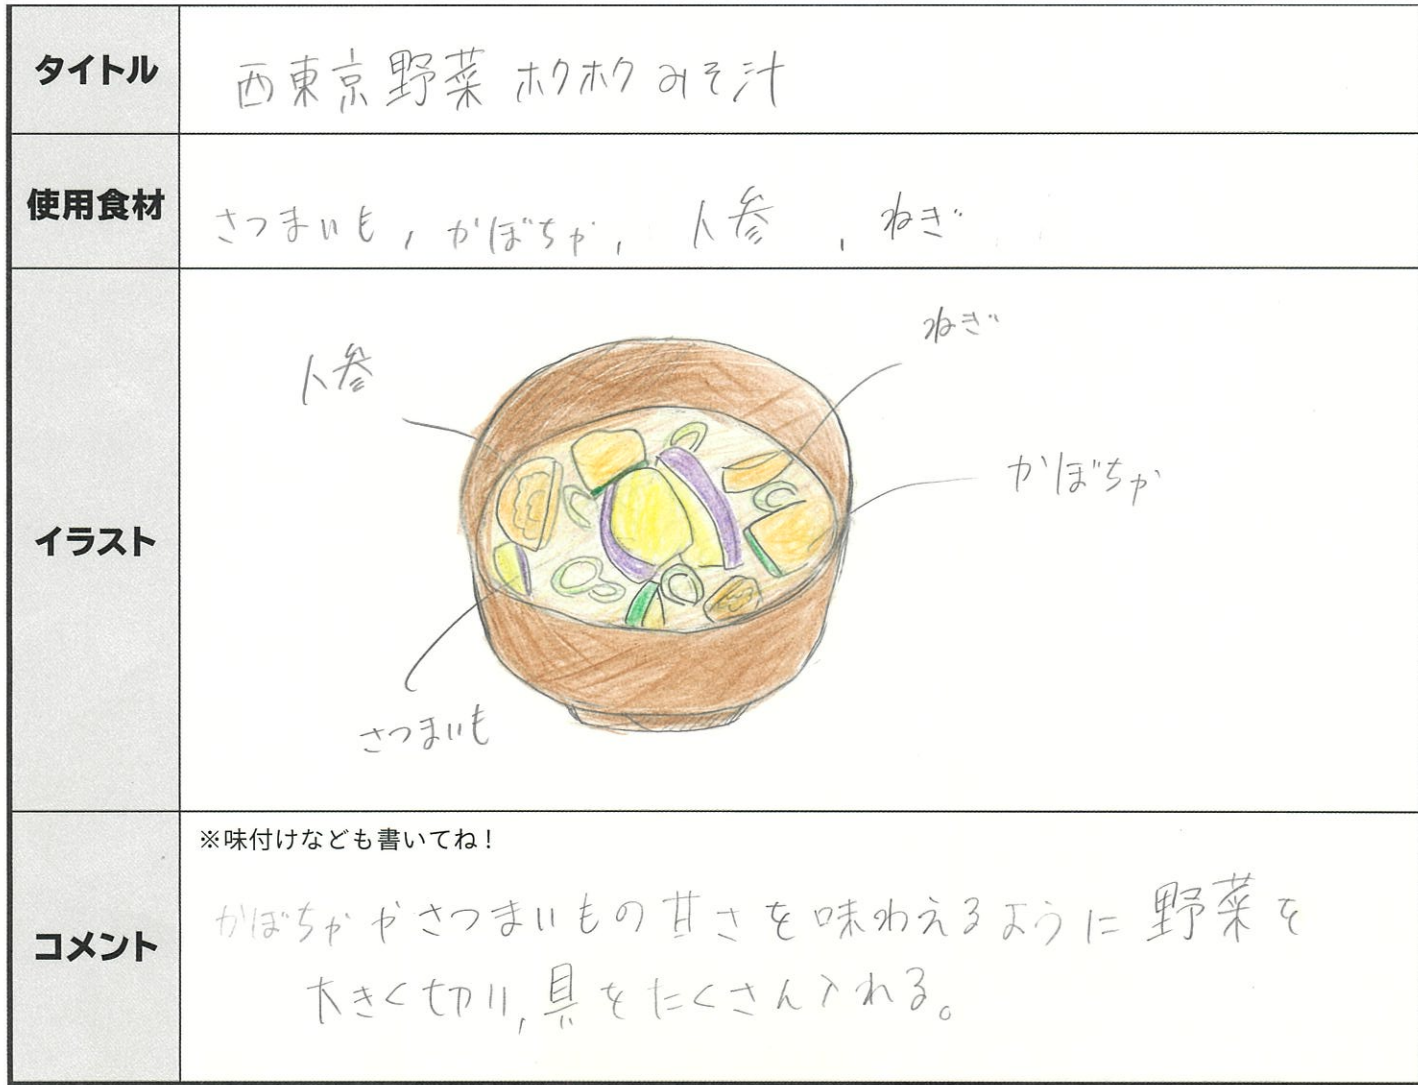 タイトル
西東京野菜 ホクホク みそ汁
使用食材
さつまいも, かぼちゃ, 人参 , ねぎ
イラスト
人参
ねぎ
かぼちゃ
さつまいも
コメント
※味付けなども書いてね!
かぼちゃやさつまいもの甘さを味わえるように野菜を
大きく切り,具をたくさん入れる。